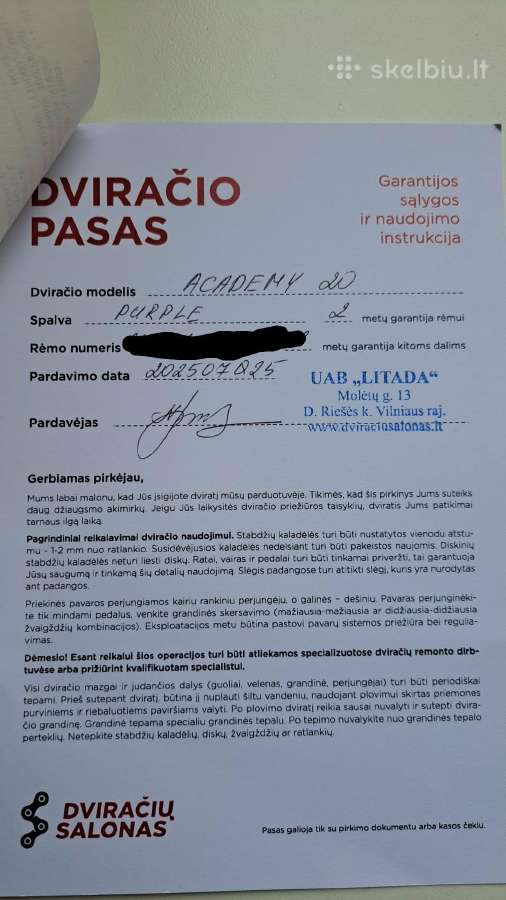 skelbiu.lt
DVIRAČIO
PASAS
Garantijos
sąlygos
ir naudojimo
instrukcija
Dviračio modelis ACADEMY 20
Spalva PURPLE 2 metų garantija rėmui
Rėmo numeris metų garantija kitoms dalims
Pardavimo data 20250725
UAB „LITADA“
Molėtų g. 13
D. Riešės k. Vilniaus raj.
www.dviraciusalonas.lt
Pardavėjas
Gerbiamas pirkėjau,
Mums labai malonu, kad Jūs įsigijote dviratį mūsų parduotuvėje. Tikimės, kad šis pirkinys Jums suteiks
daug džiaugsmo akimirkų. Jeigu Jūs laikysitės dviračio priežiūros taisyklių, dviratis Jums patikimai
tarnaus ilgą laiką.
Pagrindiniai reikalavimai dviračio naudojimui. Stabdžių kaladėlės turi būti nustatytos vienodu atstu-
mu - 1-2 mm nuo ratlankio. Susidėvėjusios kaladėlės nedelsiant turi būti pakeistos naujomis. Diskinių
stabdžių kaladėlės neturi liesti diskų. Ratai, vairas ir pedalai turi būti tinkamai priveržti, tai garantuoja
Jūsų saugumą ir tinkamą šių detalių naudojimą. Slėgis padangose turi atitikti slėgį, kuris yra nurodytas
ant padangos.
Priekinės pavaros perjungiamos kairiu rankiniu perjungėju, o galinės – dešiniu. Pavaras perjunginėki-
te tik mindami pedalus, venkite grandinės skersavimo (mažiausia-mažiausia ar didžiausia-didžiausia
žvaigždžių kombinacijos). Eksploatacijos metu būtina pastovi pavarų sistemos priežiūra bei regulia-
vimas.
Dėmesio! Esant reikalui šios operacijos turi būti atliekamos specializuotose dviračių remonto dirb-
tuvėse arba prižiūrint kvalifikuotam specialistui.
Visi dviračio mazgai ir judančios dalys (guoliai, velenas, grandinė, perjungėjai) turi būti periodiškai
tepami. Prieš sutepant dviratį, būtina jį nuplauti šiltu vandeniu, naudojant plovimui skirtas priemones
purviniems ir riebaluotiems paviršiams valyti. Po plovimo dviratį reikia sausai nuvalyti ir sutepti dvira-
čio grandinę. Grandinė tepama specialiu grandinės tepalu. Po tepimo nuvalykite nuo grandinės tepalo
perteklių. Netepkite stabdžių kaladėlių, diskų, žvaigždžių ar ratlankių.
DVIRAČIŲ
SALONAS
Pasas galioja tik su pirkimo dokumentu arba kasos čekiu.